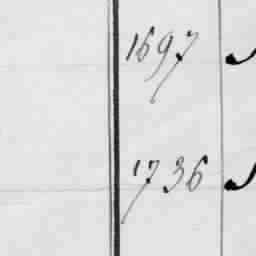 1697
1736